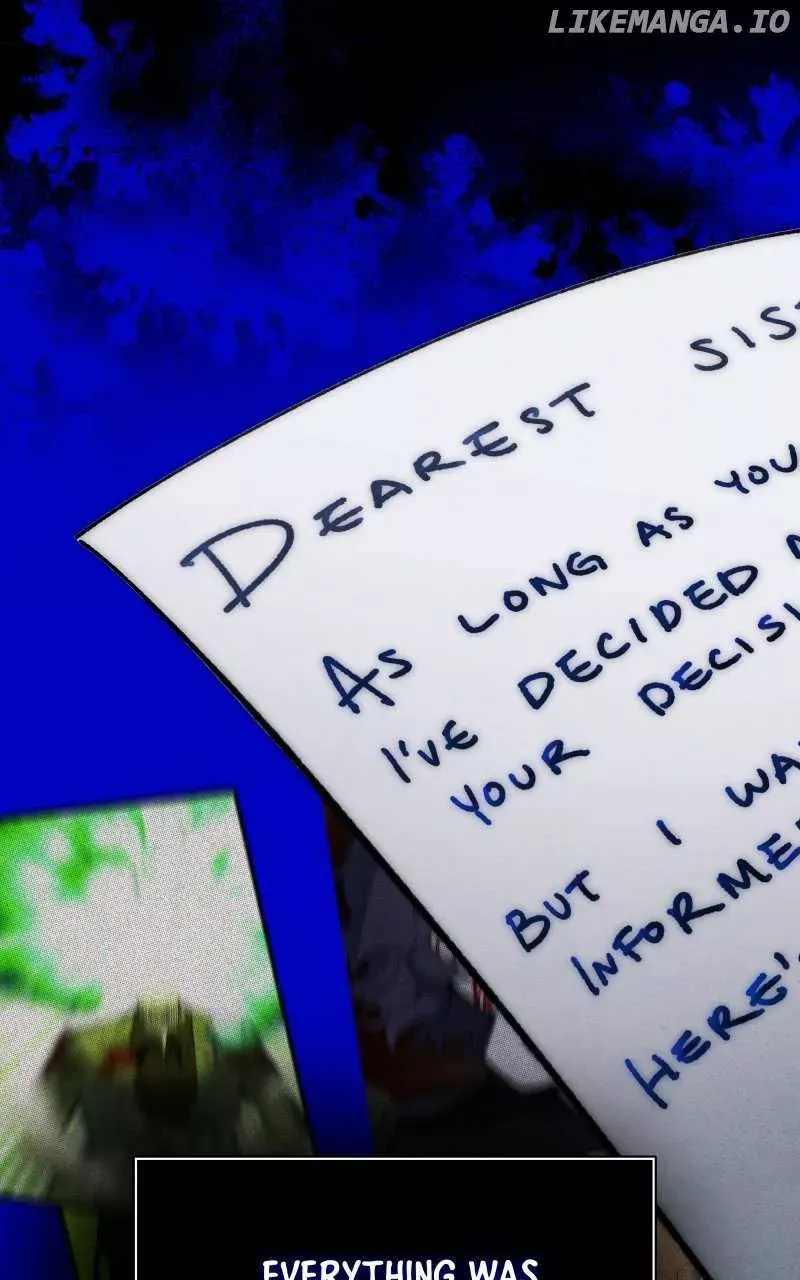 LIKEMANGA.IO
DEAREST SIS
AS LONG AS YOU
I'VE DECIDED
YOUR DECISI
BUT I WA
INFORME
HERE'S
EVERYTHING WAS